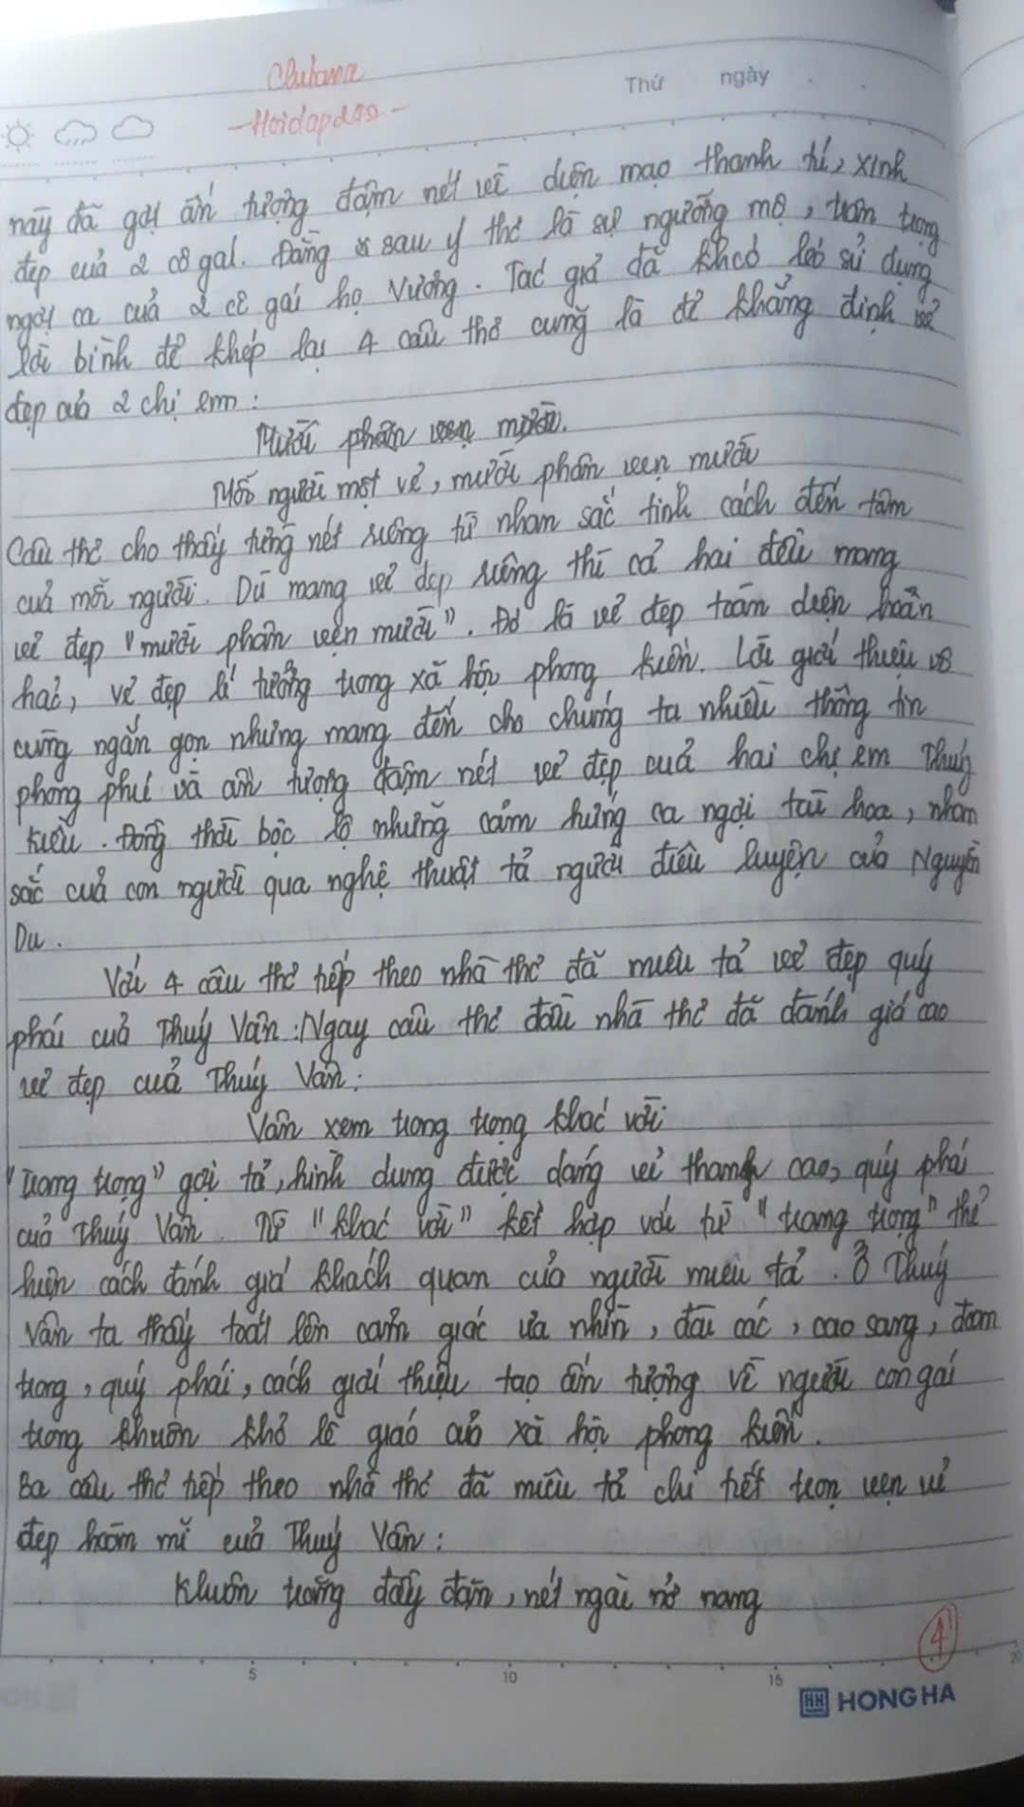 Chuhana
-Hoidap247-
Thứ ngày
này đã gợi ấn tượng đậm nét về diện mạo thanh tú, xinh
đẹp của 2 cô gái. Đằng sau ý thơ là sự ngưỡng mộ, trân trọng
ngợi ca của 2 cô gái họ Vương. Tác giả đã khéo léo sử dụng
lời bình để khép lại 4 câu thơ cũng là để khẳng định vẻ
đẹp của 2 chị em:
Mười phân vẹn mười.
Mỗi người một vẻ, mười phân vẹn mười
Câu thơ cho thấy từng nét riêng từ nhan sắc tính cách đến tâm
của mỗi người. Dù mang vẻ đẹp riêng thì cả hai đều mang
vẻ đẹp "mười phân vẹn mười". Đó là vẻ đẹp toàn diện hoàn
hảo, vẻ đẹp lí tưởng trong xã hội phong kiến. Lời giới thiệu vô
cùng ngắn gọn nhưng mang đến cho chúng ta nhiều thông tin
phong phú và ấn tượng đậm nét vẻ đẹp của hai chị em Thúy
Kiều. Đồng thời bộc lộ những cảm hứng ca ngợi tài hoa, nhan
sắc của con người qua nghệ thuật tả người điêu luyện của Nguyễn
Du.
Với 4 câu thơ tiếp theo nhà thơ đã miêu tả vẻ đẹp quý
phái của Thúy Vân: Ngay câu thơ đầu nhà thơ đã đánh giá cao
vẻ đẹp của Thúy Vân:
Vân xem trang trọng khác vời
"Trang trọng" gợi tả, hình dung được dáng vẻ thanh cao, quý phái
của Thúy Vân. Từ "khác vời" kết hợp với từ "trang trọng" thể
hiện cách đánh giá khách quan của người miêu tả. Ở Thúy
Vân ta thấy toát lên cảm giác ưa nhìn, đài các, cao sang, đoan
trang, quý phái, cách giới thiệu tạo ấn tượng về người con gái
trong khuôn khổ lễ giáo của xã hội phong kiến.
Ba câu thơ tiếp theo nhà thơ đã miêu tả chi tiết trọn vẹn vẻ
đẹp hoàn mĩ của Thúy Vân:
Khuôn trăng đầy đặn, nét ngài nở nang
4
5 10 15 20
HH HONG HA